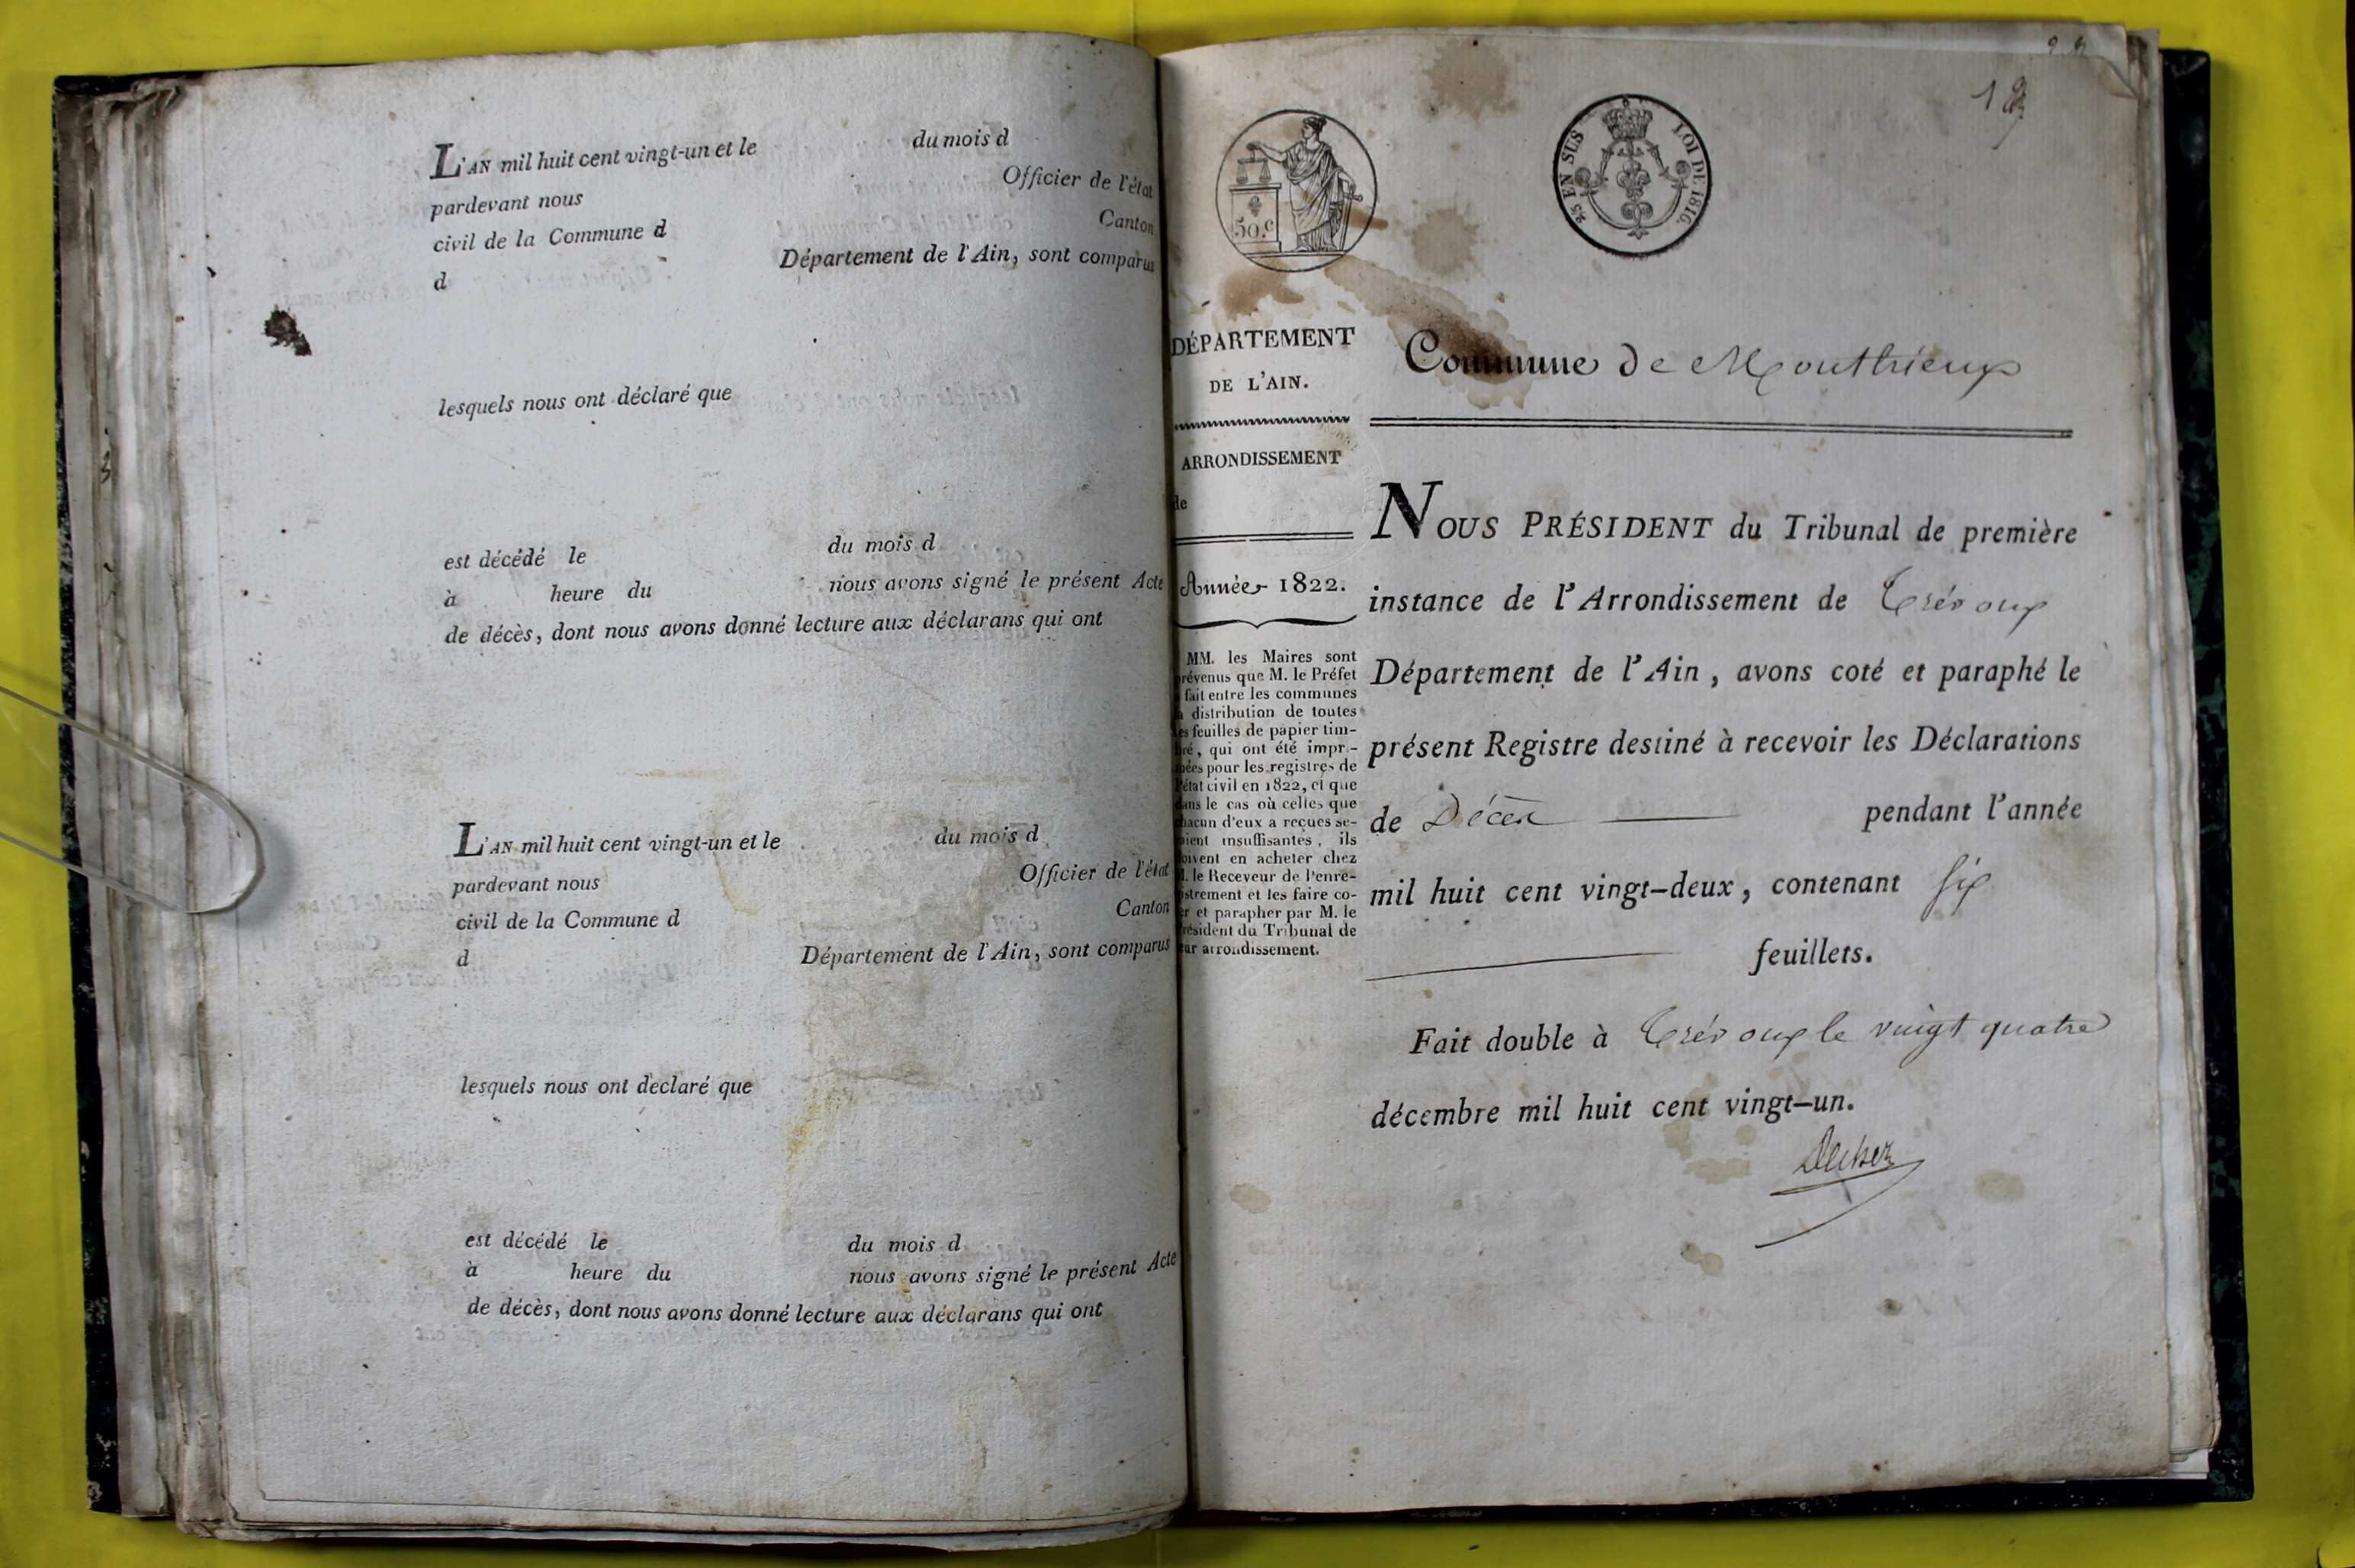 L'AN mil huit cent vingt-un et le du mois d
pardevant nous Officier de l'état
civil de la Commune d Canton
d Département de l'Ain, sont comparus
lesquels nous ont déclaré que
est décédé le du mois d
à heure du nous avons signé le présent Acte
de décès, dont nous avons donné lecture aux déclarans qui ont
L'AN mil huit cent vingt-un et le du mois d
pardevant nous Officier de l'état
civil de la Commune d Canton
d Département de l'Ain, sont comparus
lesquels nous ont déclaré que
est décédé le du mois d
à heure du nous avons signé le présent Acte
de décès, dont nous avons donné lecture aux déclarans qui ont
50.c
EN SUS LOI DE 1816.
DÉPARTEMENT
DE L'AIN.
ARRONDISSEMENT
de
Année 1822.
MM. les Maires sont
prévenus que M. le Préfet
fait entre les communes
distribution de toutes
feuilles de papier tim-
bré, qui ont été impri-
mées pour les registres de
l'état civil en 1822, et que
dans le cas où celles que
chacun d'eux a reçues se-
roient insuffisantes, ils
doivent en acheter chez
M. le Receveur de l'enre-
gistrement et les faire co-
ter et parapher par M. le
Président du Tribunal de
leur arrondissement.
Commune de Monthieux
NOUS PRÉSIDENT du Tribunal de première
instance de l'Arrondissement de Trévoux
Département de l'Ain, avons coté et paraphé le
présent Registre destiné à recevoir les Déclarations
de Décès pendant l'année
mil huit cent vingt-deux, contenant six
feuillets.
Fait double à Trévoux le vingt quatre
décembre mil huit cent vingt-un.